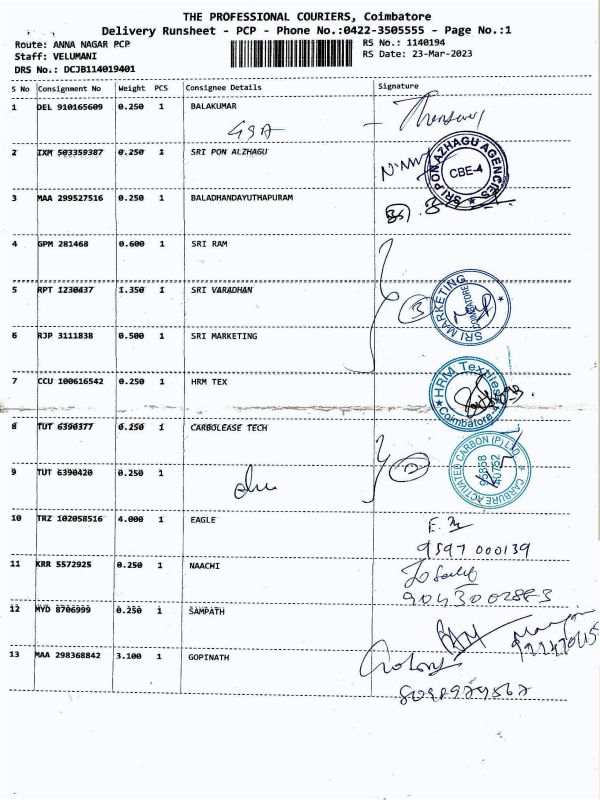 THE PROFESSIONAL COURIERS, Coimbatore
Delivery Runsheet - PCP - Phone No.:0422-3505555 - Page No.:1
Route: ANNA NAGAR PCP
Staff: VELUMANI
DRS No.: DCJB114019401
RS No.: 1140194
RS Date: 23-Mar-2023
S No Consignment No Weight PCS Consignee Details Signature
1 DEL 910165609 0.250 1 BALAKUMAR
2 IXM 503359387 0.250 1 SRI PON ALZHAGU
SRI PON AZHAGU AGENCIES
CBE-4
3 MAA 299527516 0.250 1 BALADHANDAYUTHAPURAM
4 GPM 281468 0.600 1 SRI RAM
5 RPT 1230437 1.350 1 SRI VARADHAN
3
SRI MARKETING
COIMBATORE
6 RJP 3111838 0.500 1 SRI MARKETING
7 CCU 100616542 0.250 1 HRM TEX
HRM Textiles
Coimbatore
8 TUT 6390377 0.250 1 CARBOLEASE TECH
2
CARBURE ACTIVATED CARBON (P) LTD
9 TUT 6390420 0.250 1
10 TRZ 102058516 4.000 1 EAGLE
9597 000139
11 KRR 5572925 0.250 1 NAACHI
12 MYD 8706999 0.250 1 SAMPATH
13 MAA 298368842 3.100 1 GOPINATH